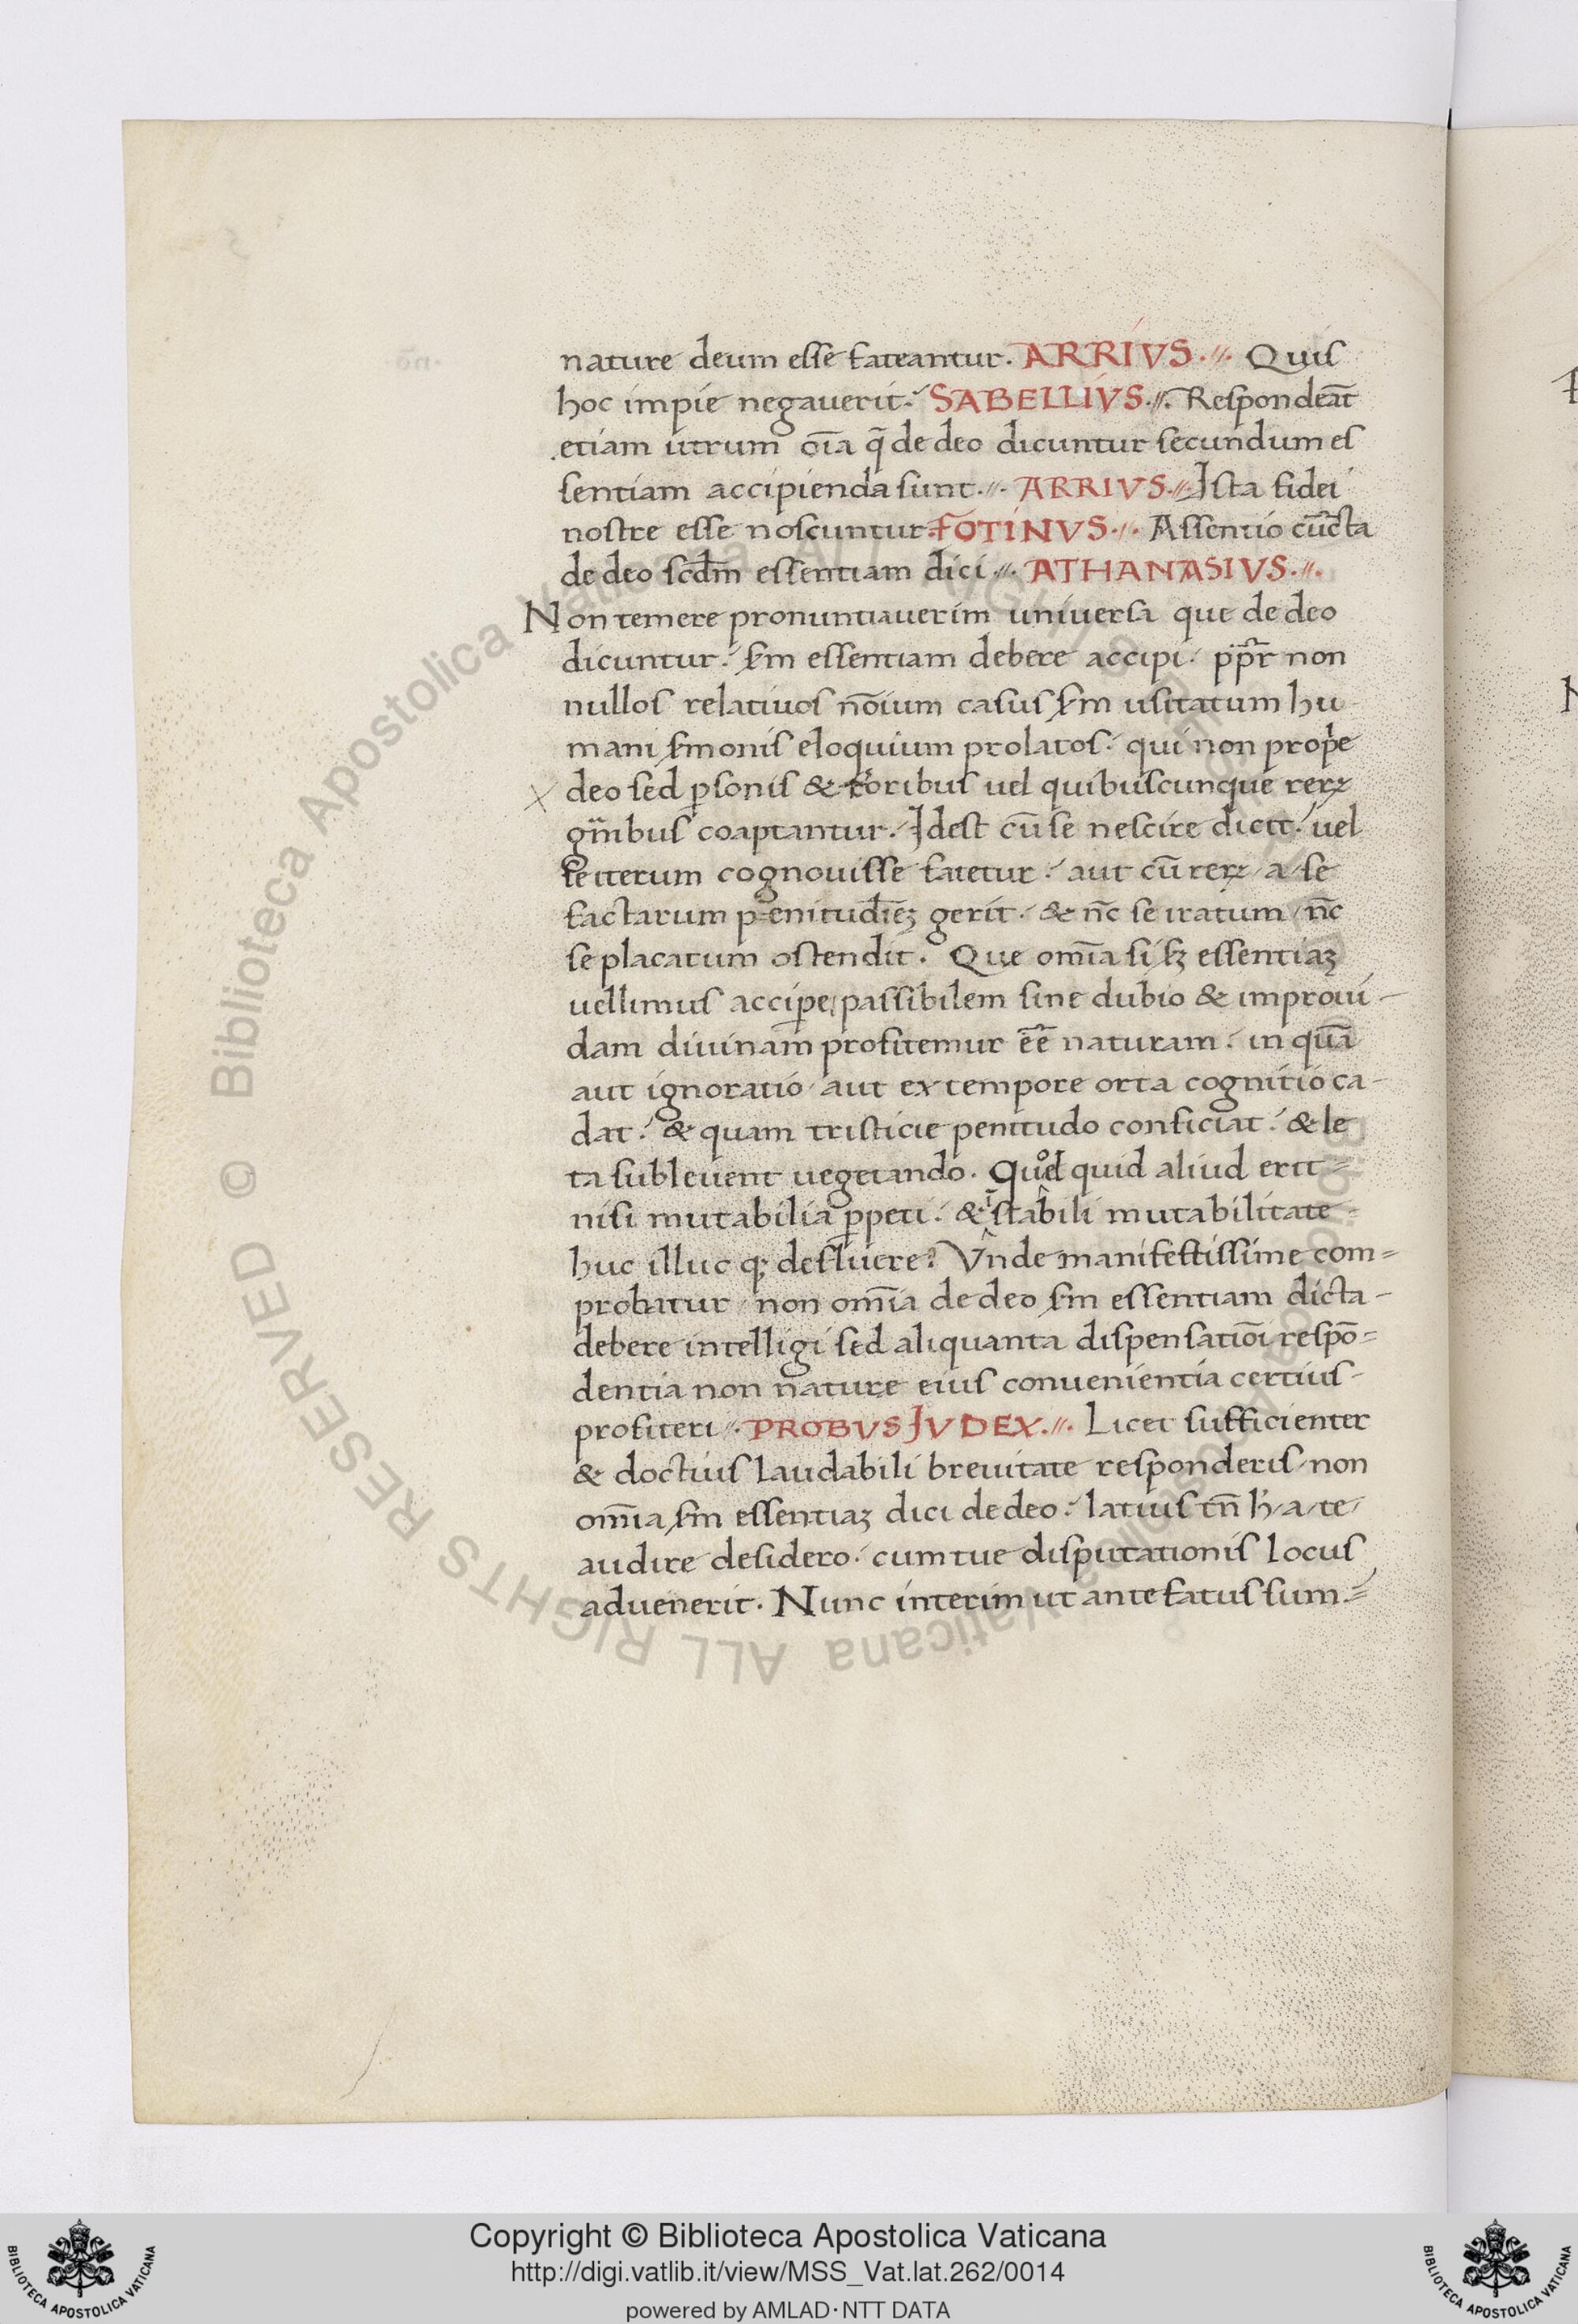 nature deum esse fateantur. ARRIVS.//. Quis
hoc impie negauerit. SABELLIVS.//. Respondeāt
etiam utrum oīa q̄ de deo dicuntur secundum es
sentiam accipienda sunt.//. ARRIVS.//. Ista fidei
nostre esse noscuntur. FOTINVS.//. Assentio cūcta
de deo scd̄m essentiam dici.//. ATHANASIVS.//.
Non temere pronuntiauerim uniuersa que de deo
dicuntur. s̄m essentiam debere accipi. pp̄r non
nullos relatiuos nōium casus s̄m usitatum hu
mani s̄monis eloquium prolatos. qui non prop̄e
deo sed ꝑsonis & uel quibuscunque rerꝝ
coaptantur. Idest cū se nescire dicit. uel
se iterum cognouisse fatetur. aut cū rerꝝ / a / se
factarum penitud̄iēꝫ gerit. & nc̄ se iratum / nc̄
se placatum ostendit. Que om̄ia si sꝫ essentiaꝫ
uellimus acciꝑe / passibilem sine dubio & improui-
dam diuinam profitemur ēē naturam. in quā
aut ignoratio / aut ex tempore orta cognitio ca-
dat. & quam tristicie penitudo conficiat. & le
ta subleuent uegetando. Quod quid aliud erit=
nisi mutabilia ꝑpeti. & īstabili mutabilitate-
huc illuc qꝫ defluere? Vnde manifestissime com=
probatur / non om̄ia de deo s̄m essentiam dicta-
debere intelligi sed aliquanta dispensatiōi respō=
dentia non nature eius conuenientia certius-
profiteri.//. PROBVS JVDEX.//. Licet sufficienter
& doctius laudabili breuitate responderis / non
om̄ia s̄m essentiaꝫ dici de deo. latius tn̄ h̄ / a / te /
audire desidero. cum tue disputationis locus
aduenerit. Nunc interim ut ante fatus sum.=
Biblioteca Apostolica Vaticana ALL RIGHTS RESERVED ©
Copyright © Biblioteca Apostolica Vaticana
http://digi.vatlib.it/view/MSS_Vat.lat.262/0014
powered by AMLAD·NTT DATA
BIBLIOTECA APOSTOLICA VATICANA
BIBLIOTECA APOSTOLICA VATICANA